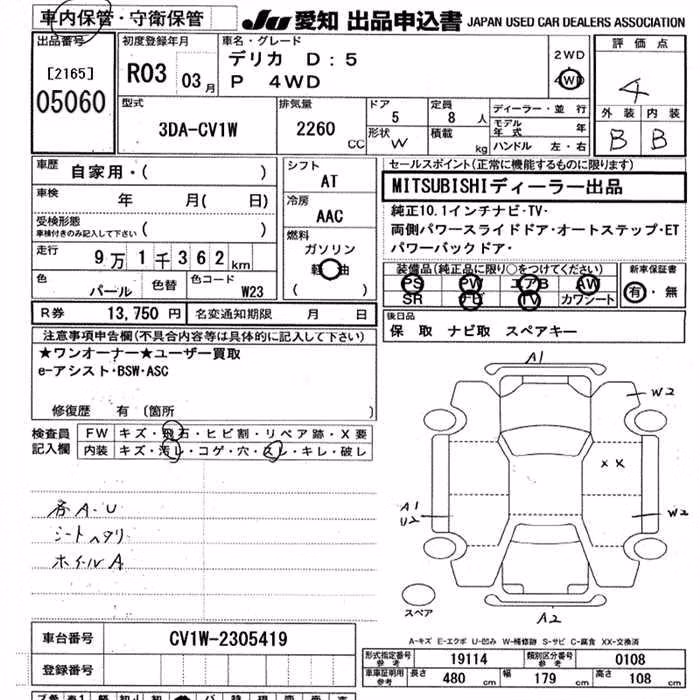 車内保管・守衛保管
JU 愛知 出品申込書 JAPAN USED CAR DEALERS ASSOCIATION
出品番号
[2165]
05060
初度登録年月
R03 03月
車名・グレード
デリカ D:5
P 4WD
2WD
4WD
評価点
4
外装 内装
B B
型式
3DA-CV1W
排気量
2260 CC
ドア
5
形状 W
定員
8 人
積載 kg
ディーラー・並行
モデル年式 年
ハンドル 左・右
車歴
自家用・( )
車検
年 月( 日)
受検形態
車検付きのみ記入して下さい ( )
走行
9万1千362km
色
パール
色替
色コード
W23
シフト
AT
冷房
AAC
燃料
ガソリン
軽油
( )
セールスポイント(正常に機能するものに限ります)
MITSUBISHIディーラー出品
純正10.1インチナビ・TV・
両側パワースライドドア・オートステップ・ET
パワーバックドア・
装備品(純正品に限り○をつけてください)
PS PW エアB AW
SR ナビ TV カワシート
新車保証書
有・無
R券 13,750円 名変通知期限 月 日
後日品
保 取 ナビ取 スペアキー
注意事項申告欄(不具合内容等は具体的に記入して下さい)
★ワンオーナー★ユーザー買取
e-アシスト・BSW・ASC
修復歴 有 (箇所 )
検査員記入欄
FW キズ・飛石・ヒビ割・リペア跡・X要
内装 キズ・汚レ・コゲ・穴・スレ・キレ・破レ
各A・U
シートヘタリ
ホイルA
A1
W2
XX
A1
U2
W2
スペア
A2
A-キズ E-エクボ U-凹み W-補修跡 S-サビ C-腐食 XX-交換済
車台番号 CV1W-2305419
登録番号
形式指定番号 参考 19114 類別区分番号 参考 0108
車庫証明用 参考 長さ 480 cm 幅 179 cm 高さ 108 cm